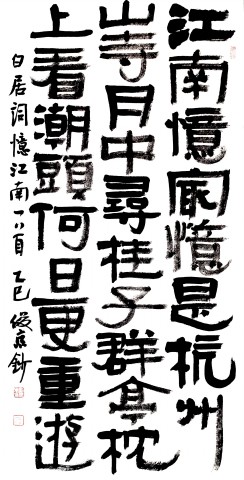 江南憶冣憶是杭州
山寺月中尋桂子群亭枕
上看潮頭何日更重遊
白居詞憶江南一首 乙巳 鈔